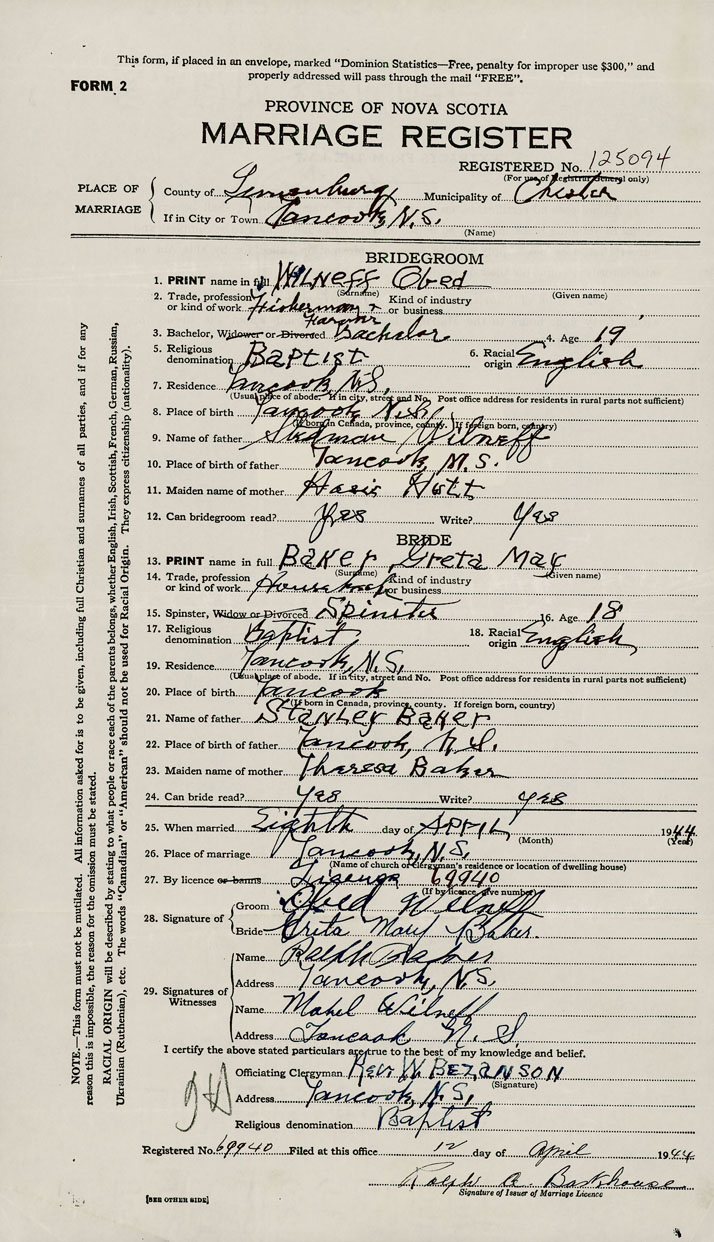 This form, if placed in an envelope, marked "Dominion Statistics—Free, penalty for improper use $300," and
properly addressed will pass through the mail "FREE".
FORM 2
PROVINCE OF NOVA SCOTIA
MARRIAGE REGISTER
REGISTERED No. 125094
(For use of Registrar General only)
PLACE OF MARRIAGE County of Lunenburg Municipality of Chester
If in City or Town Tancook, N.S.
(Name)
BRIDEGROOM
1. PRINT name in full WILNEFF Obed
(Surname) (Given name)
2. Trade, profession or kind of work Fisherman & Farmer Kind of industry or business
3. Bachelor, Widower or Divorced Bachelor 4. Age 19
5. Religious denomination Baptist 6. Racial origin English
7. Residence Tancook, N.S.
(Usual place of abode. If in city, street and No. Post office address for residents in rural parts not sufficient)
8. Place of birth Tancook
(If born in Canada, province, county. If foreign born, country)
9. Name of father Wilneff
10. Place of birth of father Tancook, N.S.
11. Maiden name of mother Hutt
12. Can bridegroom read? Yes Write? Yes
BRIDE
13. PRINT name in full BAKER Greta May
(Surname) (Given name)
14. Trade, profession or kind of work Kind of industry or business
15. Spinster, Widow or Divorced Spinster 16. Age 18
17. Religious denomination Baptist 18. Racial origin English
19. Residence Tancook, N.S.
(Usual place of abode. If in city, street and No. Post office address for residents in rural parts not sufficient)
20. Place of birth Tancook
(If born in Canada, province, county. If foreign born, country)
21. Name of father STANLEY BAKER
22. Place of birth of father Tancook, N.S.
23. Maiden name of mother Theresa Baker
24. Can bride read? Yes Write? Yes
25. When married Eighth day of APRIL 1944
(Month) (Year)
26. Place of marriage Tancook, N.S.
(Name of church or Clergyman's residence or location of dwelling house)
27. By licence or banns 69940
(If by licence give number)
28. Signature of Groom Obed Wilneff
Bride Greta May Baker.
29. Signatures of Witnesses Name Ralph
Address Tancook, N.S.
Name Wilneff
Address Tancook N. S.
I certify the above stated particulars are true to the best of my knowledge and belief.
Officiating Clergyman Rev. W. BEZANSON
(Signature)
Address Tancook, N.S.
Religious denomination Baptist
Registered No. 69940 Filed at this office 12 day of April 1944
Ralph A. Barkhouse
Signature of Issuer of Marriage Licence
[SEE OTHER SIDE]
NOTE.—This form must not be mutilated. All information asked for is to be given, including full Christian and surnames of all parties, and if for any
reason this is impossible, the reason for the omission must be stated.
RACIAL ORIGIN will be described by stating to what people or race each of the parents belongs, whether English, Irish, Scottish, French, German, Russian,
Ukrainian (Ruthenian), etc. The words "Canadian" or "American" should not be used for Racial Origin. They express citizenship (nationality).